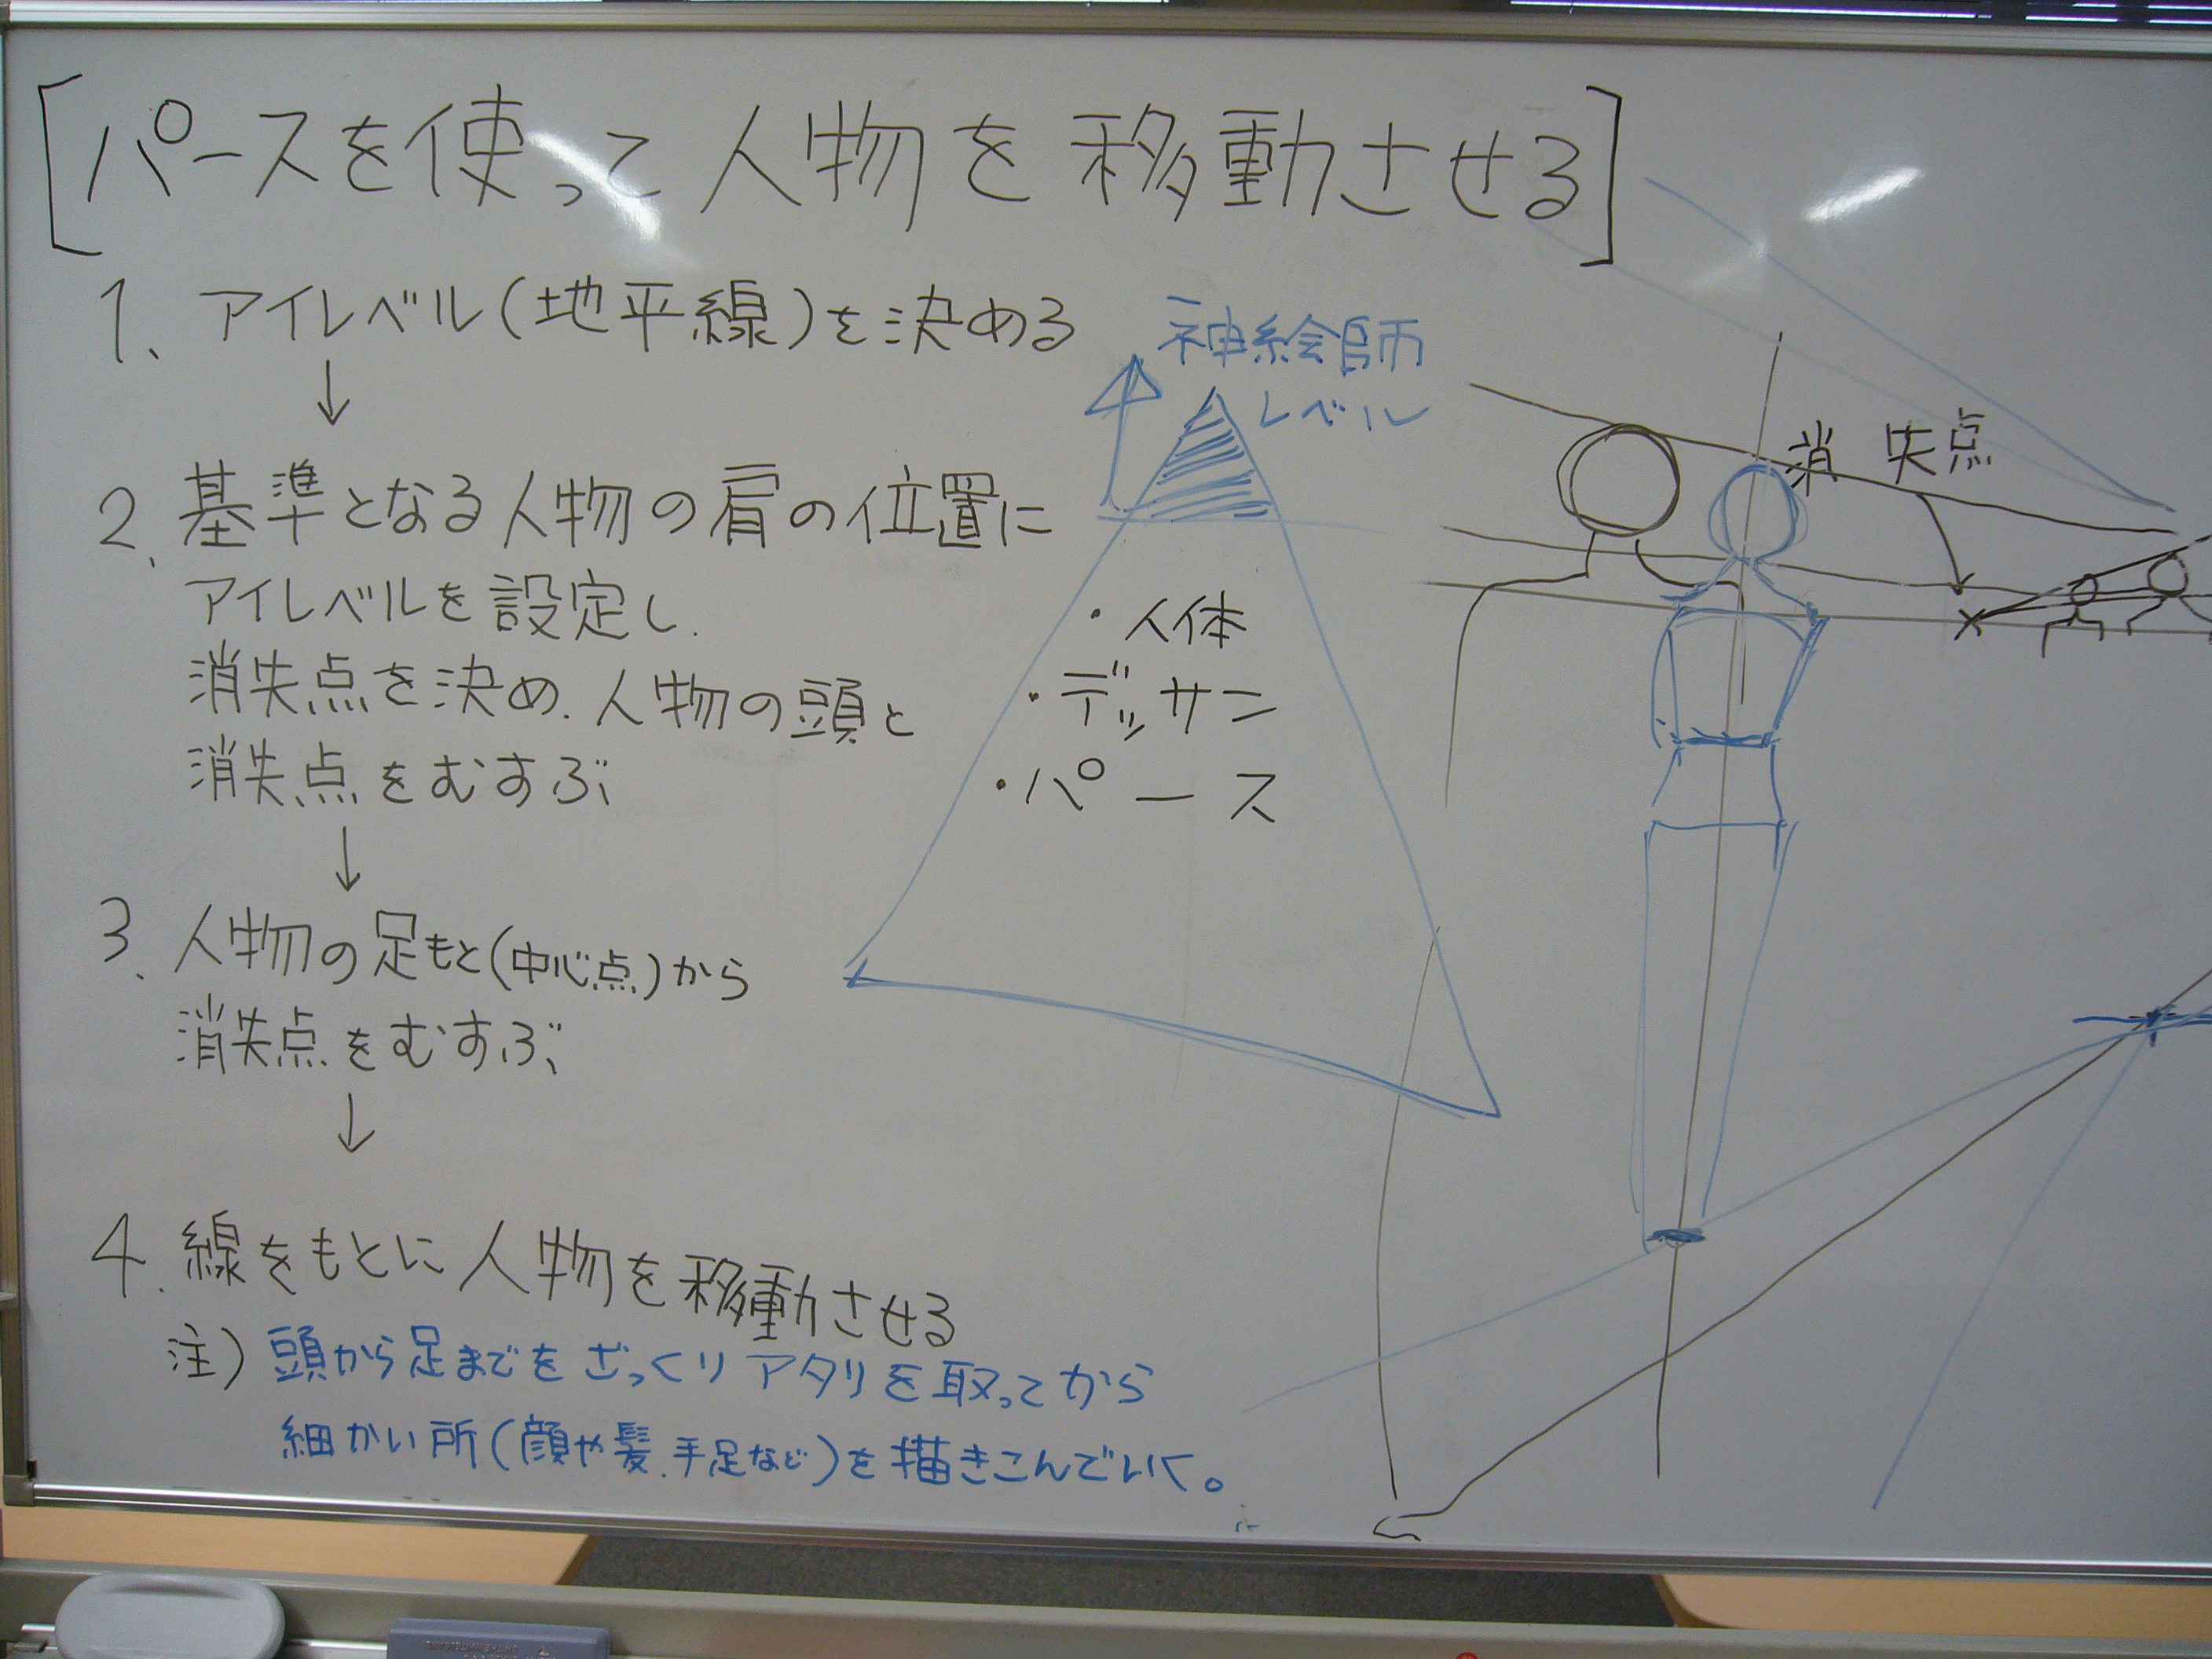 [パースを使って人物を移動させる]
1、アイレベル(地平線)を決める
↓
2、基準となる人物の肩の位置に
アイレベルを設定し、
消失点を決め、人物の頭と
消失点をむすぶ
↓
3、人物の足もと(中心点)から
消失点をむすぶ
↓
4、線をもとに人物を移動させる
注)頭から足までをざっくりアタリを取ってから
細かい所(顔や髪、手足など)を描きこんでいく。
神絵師
レベル
・人体
・デッサン
・パース
消失点